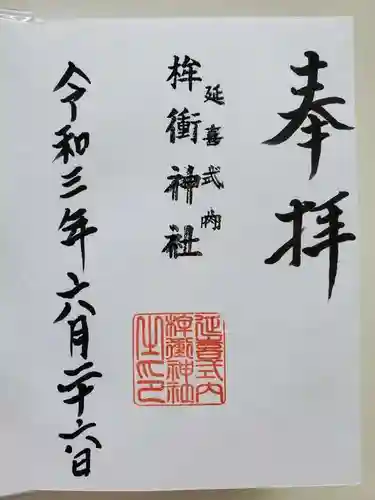 奉拝
延喜式內
桙衝神社
令和三年六月二十六日
延喜式内
桙衝神社
之印